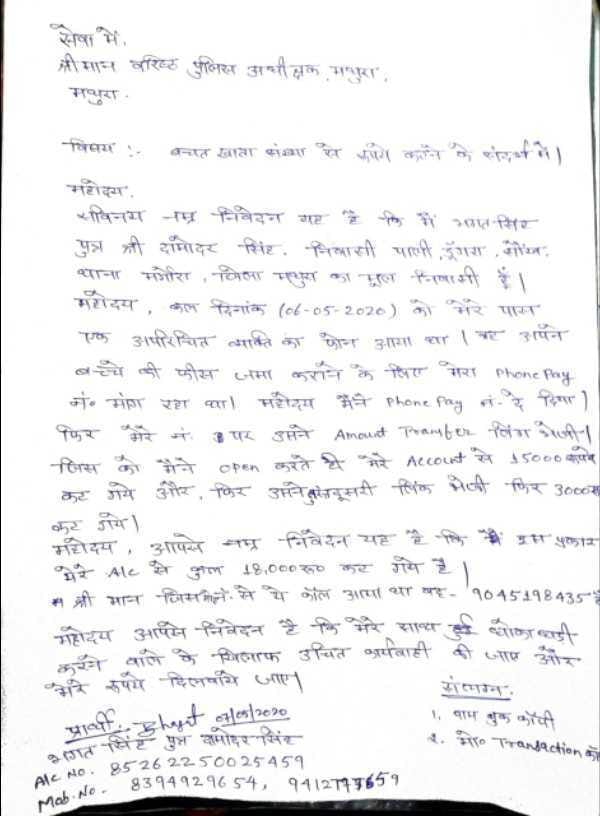 सेवा में,
श्रीमान वरिष्ठ पुलिस अधीक्षक, मथुरा,
मथुरा.
विषय :- बचत खाता संख्या से रूपये कटने के संदर्भ में।
महोदय,
सविनय नम्र निवेदन यह है कि मैं भगत सिंह
पुत्र श्री दामोदर सिंह. निवासी पाली, डूंगरा, सौंख,
थाना मगोर्रा, जिला मथुरा का मूल निवासी हूँ।
महोदय, कल दिनांक (06-05-2020) को मेरे पास
एक अपरिचित व्यक्ति का फोन आया था। वह अपने
बच्चे की फीस जमा कराने के लिए मेरा Phone Pay
नं० मांग रहा था। महोदय मैंने Phone Pay नं- दे दिया।
फिर मेरे नं. पर उसने Amount Transfer लिंक भेजी।
जिस को मैंने open करते ही मेरे Account से 15000 रूपये
कट गये और, फिर उसने दूसरी लिंक भेजी फिर 3000
कट गये।
महोदय, आपसे नम्र निवेदन यह है कि इस प्रकार
मेरे A/c से कुल 18,000 रू० कट गये है।
श्री मान जिस नं. से ये कॉल आया था वह- 9045198435 है
महोदय आपसे निवेदन है कि मेरे साथ धोकाधडी
करने वाले के खिलाफ उचित कार्यवाही की जाए और
मेरे रूपये दिलवाये जाए।
संलग्न.
1. पास बुक कॉपी
2. Transaction कॉ
प्रार्थी:- Bhagat 07/05/2020
भगत सिंह पुत्र दामोदर सिंह
A/c No. 85262250025459
Mob. No. 8394929654,